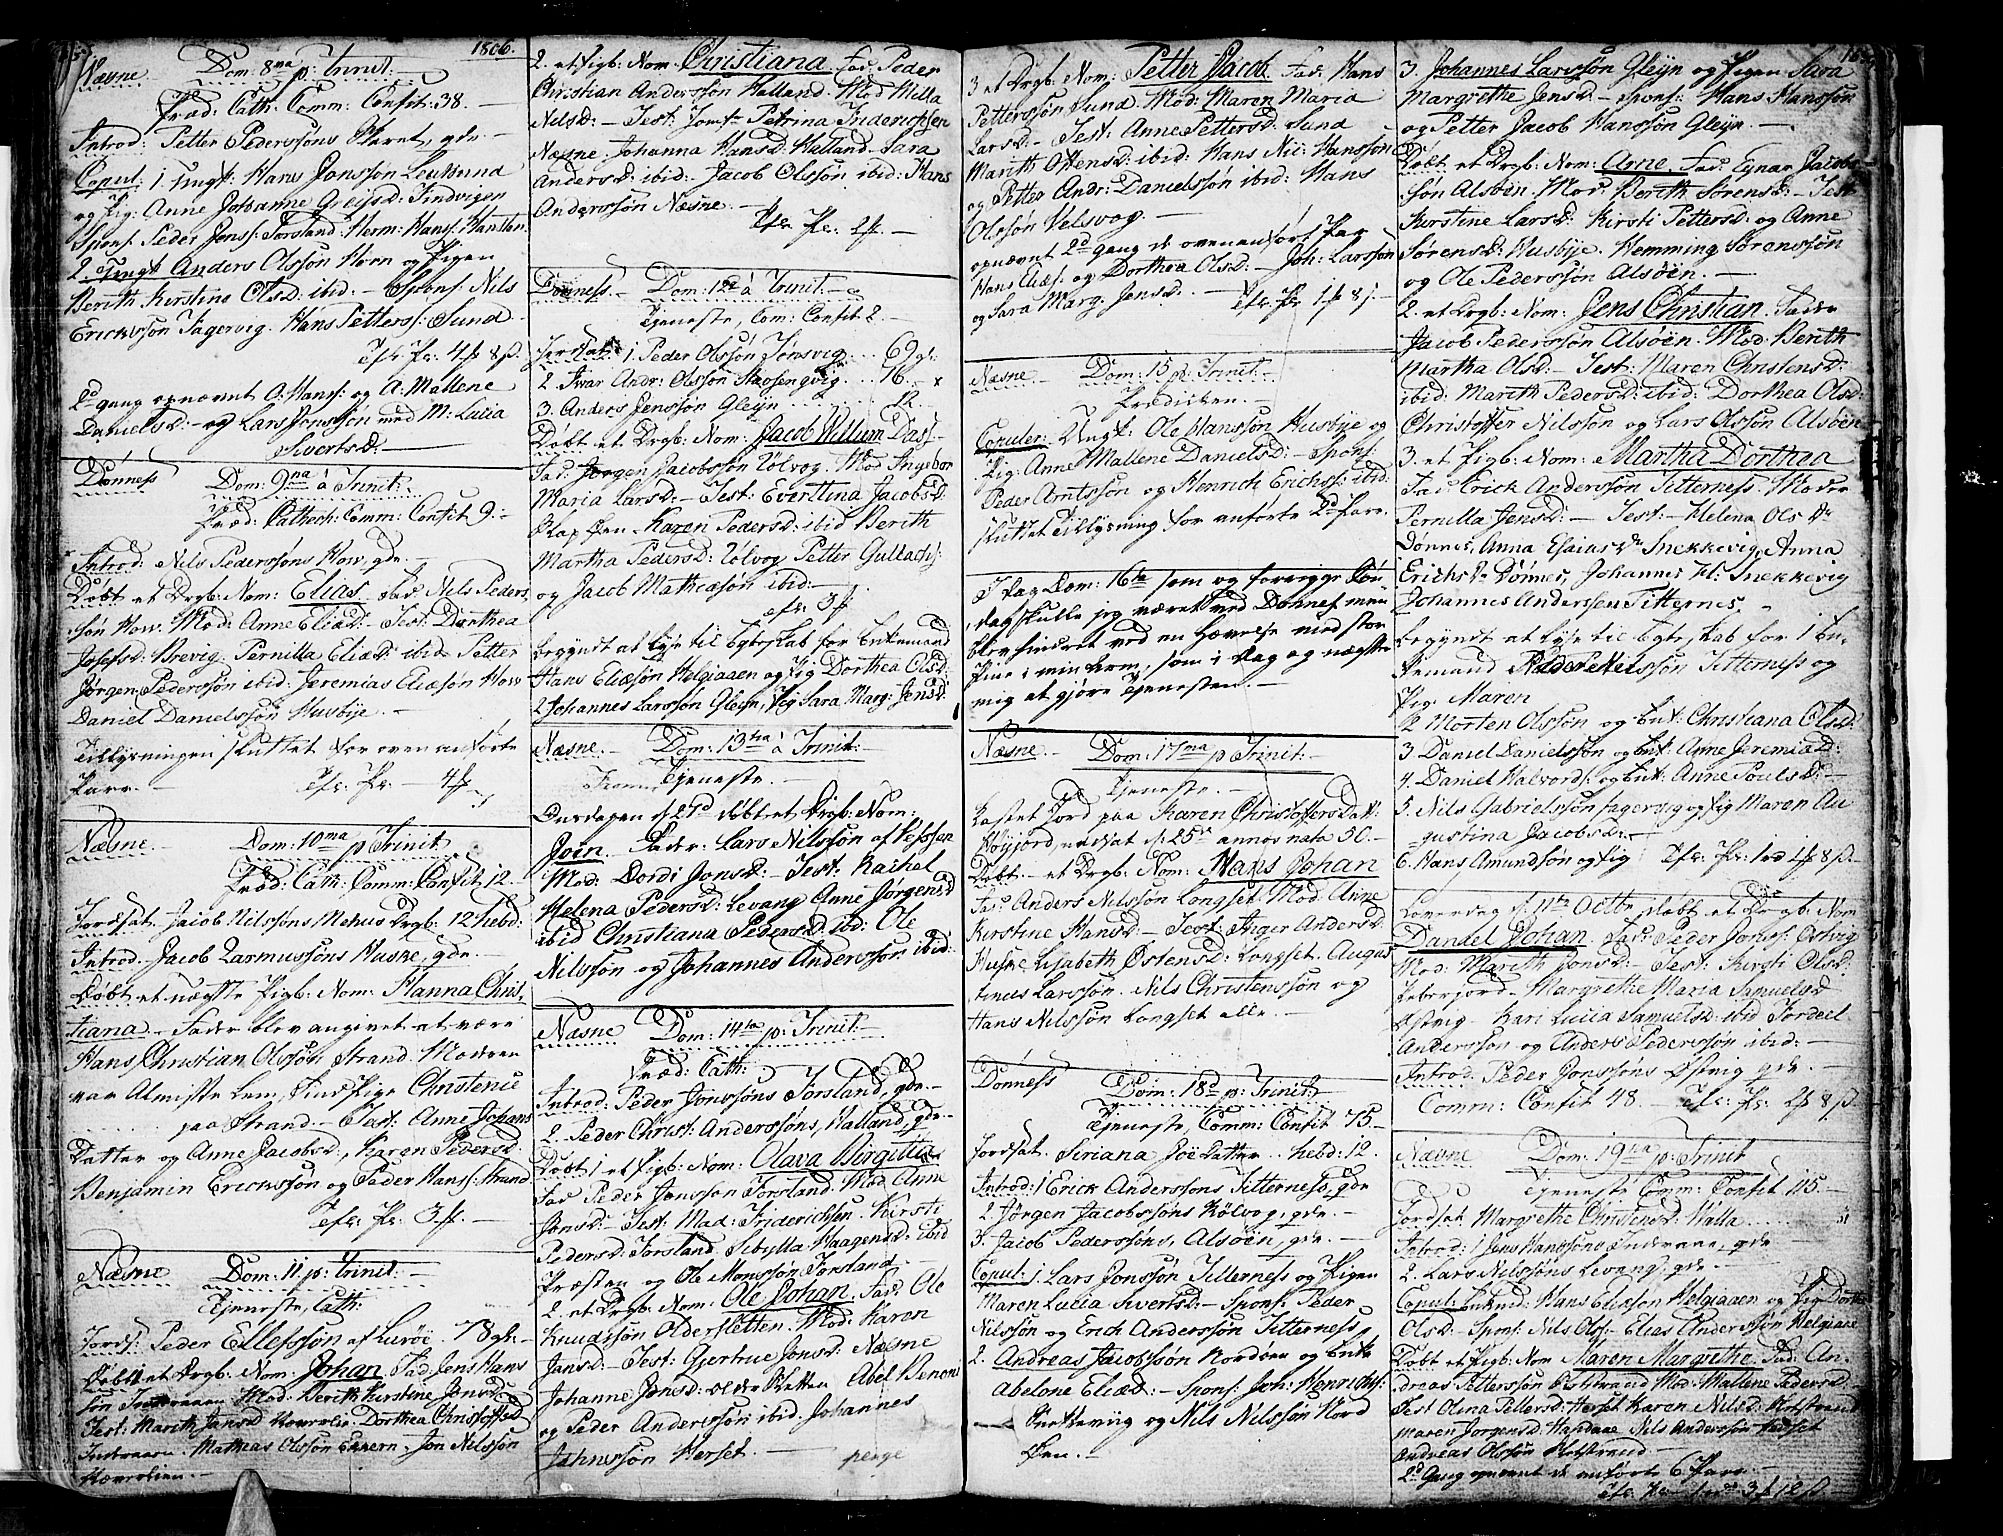 1806.
Næsne Dom: 8va p: Trinit:
Præd: Cath: Comm: Confit: 38. –
Introd: Petter Pederssöns Qvret, gde. –
Copul: 1. Ungk: Hans Jonssön
og Pig: Anne Johanne Gleisd: Findvigen
Spons: Peder Jonss: Forsland. Herm: Hanss:
2. Ungk Anders Olssön Horn og Pigen
Berith Kirstine Olsd: ibid. – Spons: Nils
Erickssön Fagervig. Hans Petterss: Sund –
Ofr: Pr: 4 8 ß.
2d gang opnævnt O: Hanss: og A: Mallene
Danielsd: – og Lars Jonssön med M: Lucia
Sivertsd: –
Dönness Dom: 9na à Trinit:
Præd: Cathech: Comm: Confit: 9. –
Introd: Nils Pederssöns How, gde. –
Döbt et Drgb: Nom: Elias. Fad: Nils Peders
sön How. Mod: Anne Eliæd: – Test: Dorthea
Josefsd: Brevig. Pernilla Eliæd: ibid. Petter
Jörgen Pederssön ibid: Jeremias Eliæsön How
Daniel Danielssön Husbye. –
Tillysningen sluttet for oven anförte
Parr. – Ofr: Pr: 4
Næsne. Dom: 10ma p Trinit
Præd: Cath: Comm: Confit: 12. –
Jordsat. Jacob Nilssöns Drgb: 12 hebd:
Introd. Jacob Zarmussöns Huske, gde. –
Döbt et uægte Pigb: Nom: Hanna Chris,
tiana – Fader blev angivet at være
Hans Christian Olssön, Strand. Moderen
var Almisse Lem, Christenie
paa Strand. – Test: Anne Johans
Datter og Anne Jacobsd:, Karen Pedersd:
Benjamin Erickssön og Peder Hanss: Strand
Ofr: Pr: 3
Næsne Dom: 11 p: Trinit: –
Tjeneste, Cath:
Jords: Peder Ellefssön af Luröe. 78 gle. –
Döbt et Drgb: Nom: Johan Fad: Jens Hans
sön Indraanen Mod: Berith Kirstine Jonsd:
Test: Marith Jansd Dorthea Christoffsd
Indraaen. Mathias Olssön Jon Nilssön
2. et Pigb: Nom. Christiana. Fad: Peder
Christian Anderssön Halland. Mod Milla
Nilsd: – Test: Jomfr Petrina Friderichsen
Næsne. Johanna Hansd: Halland. Sara
Andersd: ibid: Jacob Olssön ibid: Hans
Anderssön Næsne. –
Ofr: Pr: 2
Dönness – Dom: 12te à Trinit: –
Tjeneste, Com: Confit 8. –
Jordsat: 1. Peder Olssön Jönsvig .. 69 gl:
2. Iver Andr: Olssön . 16.
3. Anders Jenssön Gleyn ... 12. –
Döbt et Drgb: Nom: Jacob Willum Dass –
Fad: Jörgen Jacobssön Kölvog. Mod Ingebor
Maria Larsd: – Test: Everttina Jacobsd:
Karen Pedersd: ibid Berith
Martha Pedersd: Kölvog Petter
og Jacob Mathiasön ibid: –
Ofr: 3
Begyndt at lyse til Egteskab for Enkemand
Hans Eliæsön Helgiaaen og Pig Dorthea Olsd:
2 Johannes Larssön Gleyn, Pig Sara Marg: Jensd:
Næsne. – Dom: 13tia à Trinit: –
Tjeneste. –
Onsdagen d: 27d döbt et Drgb: Nom:
Join. Fader: Lars Nilssön af
Mod: Dordi Jonsd: – Test: Rachel
Helena Pedersd: Levang Anne Jörgensd
ibid Christiana Pedersd: ibd: Ole
Nilssön og Johannes Anderssön ibid:
Næsne Dom: 14ta p: Trinit: –
Præd: Cath:
Introd: Peder Jonssöns Forsland, gde. –
2. Peder Christ: Anderssöns, Halland, g –
Döbt 1 et Pigb: Nom: Olava Birgitta
Fad: Peder Jonssön Forsland. Mod: Anne
Jonsd: – Test: Mad: Friderichsen. Kirsti
Pedersd: Forsland. Sibylla Haagensd: ibid
Præsten og Ole Monssön Forsland. –
2 et Drgb: Nom: Ole Johan. Fad: Ole
Knudssön Oldersletten. Mod: Karen
Jansd: – Test: Gjertrue Jonsd: Næsne
Johanne Jonsd: Oldersletten Abel Benoni
og Peder Anderssön ibid. Johannes
Johnssön Herset. – penge
3 et Drgb: Nom: Petter Jacob. Fad: Hans
Petterssön Sund. Mod: Maren Maria
Larsd: – Test: Anne Pettersd: Sund
Marith Ottensd: ibid: Hans Nic: Hanssön
og Petter Andr: Danielssön ibid: Hans
Olssön Velsvog. –
opnævnt 2d gang de ovenanfört Par
Hans Eliæs: og Dorthea Olsd: – Joh: Larssön
og Sara Marg: Jensd: – Ofr: Pr 1 8 ß –
Næsne. – Dom: 15 p: Trinit: –
Prædiken. –
Copuler: Ungk: Ole Hanssön Husbye og
Pig: Anne Mallene Danielsd: – Spons:
Peder Arntssön og Henrich Erichss: ibid:
sluttet Tillysning for anförte 2d Parr. –
I Dag Dom: 16te som og forrigge Sön,
dag skulle jeg været ved Dönnes, men
blev hindret ved en Hævelse med stor
Pine i min Arm, som i Dag og nægtte
mig at gjöre Tjenesten. –
Næsne – Dom: 17ma p Trinit: –
Tjeneste. –
Kastet Jord paa Karen Christoffersdatt:
Höyjord, nedsat d: 25de annos nata 50. –
Döbt – et Drgb: Nom: Hans Johan
Fad: Anders Nilssön Longset. Mod: Anne
Kirstine Hansd: – Test: Anger Andersd:
Huske Lisabeth Östensd: Longset. Augus
tinus Larssön. Nils Christenssön og
Hans Nilssön Longset alle. –
Dönness Dom: 18d p: Trinit:
Tjeneste, Comm: Confit 75. –
Jordsat. Siriana Joe Datter .. hebd: 12.
Introd: 1 Erick Anderssöns Titterness, gde
2. Jörgen Jacobssöns Kölvog, gde. –
3. Jacob Pederssöns, Alsöen, gde. –
Copul: 1. Lars Jonssön Titterness og Pigen
Maren Lucia Sivertsd: – Spons: Peder
Nilssön og Erich Anderssön Titterness,
2. Andreas Jacobssön Nordöen og Enke
Abelone Eliæd: – Spons: Joh: Henrichs:
og Nils Nilssön Nord
Öen. –
3. Johannes Larssön Gleyn og Pigen Sara
Margrethe Jensd: – Spons: Hans Hanssön
og Petter Jacob Hanssön Gleyn. –
Döbt et Drgb: Nom: Arne. Fad: Eynar Jacobs
sön Alsöen. Mod: Berith Sörensd: – Test:
Kirstine Larsd: Kirsti Pettersd: og Anne
Sörensd: Husbye. Hemming Sörenssön
og Ole Pederssön Alsöen. –
2. et Drgb: Nom: Jens Christian. Fader
Jacob Pederssön Alsöen. Mod: Berith
Martha Olsd: – Test: Maren Christensd:
ibid: Marith Pedersd: ibid: Dorthea Olsd:
Christoffer Nilssön og Lars Olssön Alsöen
3. et Pigb: Nom: Martha Dorthea
Fad: Erick Anderssön Titterness. Moder
Pernilla Jensd: – Test: Helena Olsdr
Dönnes, Anna Esaiasdr Snekkevig, Anna
Erichsdr Dönnes, Johannes Snekkevig
Johannes Anderssen Titternes. –
Begyndt at lyse til Egteskab for 1 En,
kemand Peder Nilssön Titterness og
Pig: Maren
2 Morten Olssön og Enk: Christiana Olsd:
3 Daniel Danielssön og Enk: Anne Jeremiæd:
4. Daniel Halvords: og Enk: Anne Poulsd: –
5. Nils Gabrielssön Fagervig og Pig Maren Au
gustina Jacobsd: –
6. Hans Amundsön og Pig Ofr: Pr: 8 ß. –
Löverdag d: 11te Octbr, döbt et Drgb: Nom
Daniel Johan Fad: Peder Jonss: Östvig
Mod: Marith Jonsd: – Test: Kirsti Olsd:
Margrethe Maria Samuelsd
Östvig. Kari Lucia Samuelsd: ibid
Anderssön og Anders Pederssön ibid: –
Introd: Peder Jonssöns Östvig gde. –
Comm: Confit 48. – Ofr: Pr: 2 8 ß –
Næsne Dom: 19na p: Trinit
Tjeneste Comm: Confit 115. –
Jordsat Margrethe Christensd: Halla
Introd: 1 Jens Hanssöns Indraaen, gde –
2. Lars Nilssöns Levang, gde. –
Copul: Enkmd: Hans Eliæsön Helgiaaen og Pig Dorthe
Olsd: – Spons: Nils Olss: – Elias Anderssön Helgiaae
Döbt et Pigb: Nom Maren Margrethe. Fad: An
dreas Petterssön Mod: Mallene Pedersd
Test Olina Pettersd: Herset Karen Nilsd:
Maren Jorgensd: Nils Anderssön
Andreas Olssön
2d Gang opnævnt de anförte 6 Parr. –